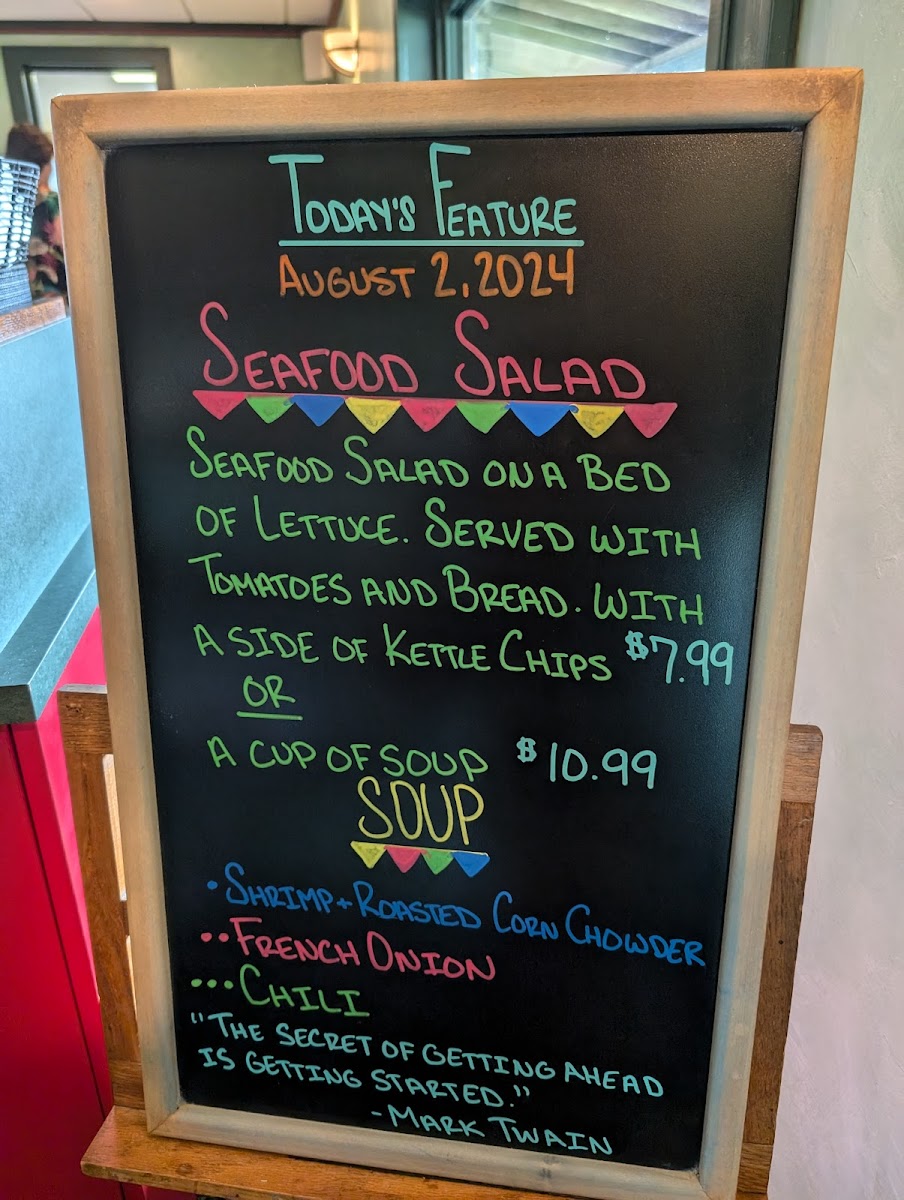 TODAY'S FEATURE
AUGUST 2, 2024
SEAFOOD SALAD
SEAFOOD SALAD ON A BED
OF LETTUCE. SERVED WITH
TOMATOES AND BREAD. WITH
A SIDE OF KETTLE CHIPS $7.99
OR
A CUP OF SOUP $10.99
SOUP
• SHRIMP + ROASTED CORN CHOWDER
•• FRENCH ONION
••• CHILI
"THE SECRET OF GETTING AHEAD
IS GETTING STARTED."
- MARK TWAIN